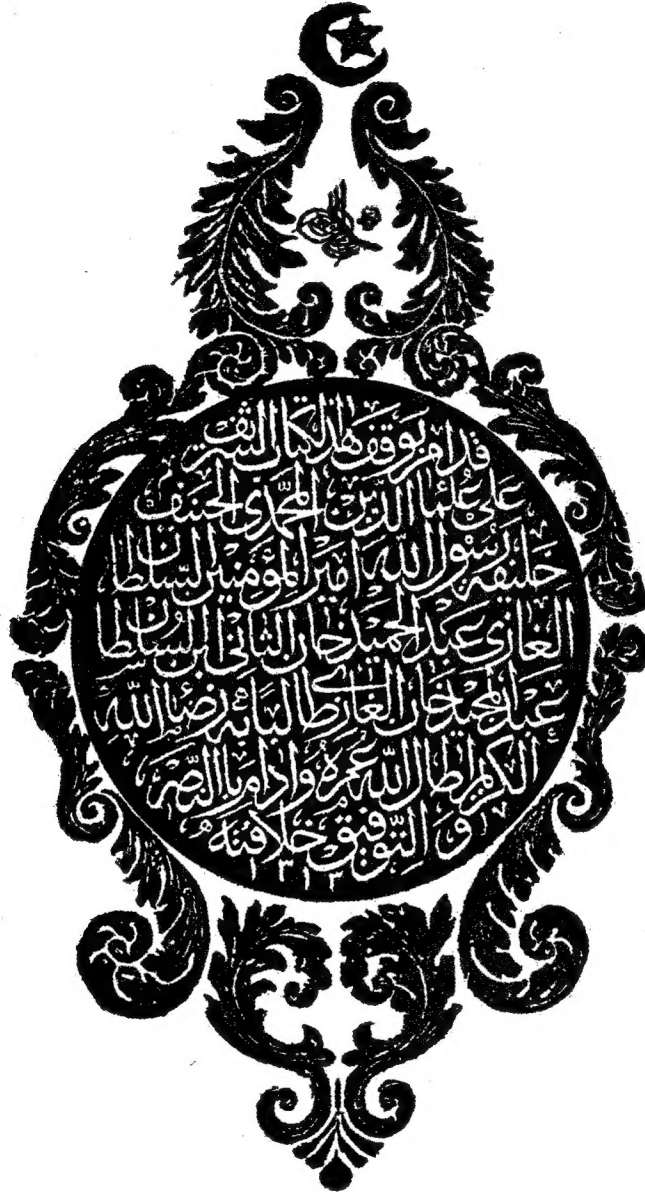 قد امر بوقف هذا الكتاب الشريف
على علماء الدين المحمدي الحنيف
خليفة رسول الله امير المؤمنين السلطان
الغازى عبد الحميد خان الثانى ابن السلطان
عبد المجيد خان الغازى طالبا به رضاء الله
الكريم اطال الله عمره وادام بالنصر
والتوفيق خلافته
١٣١٣